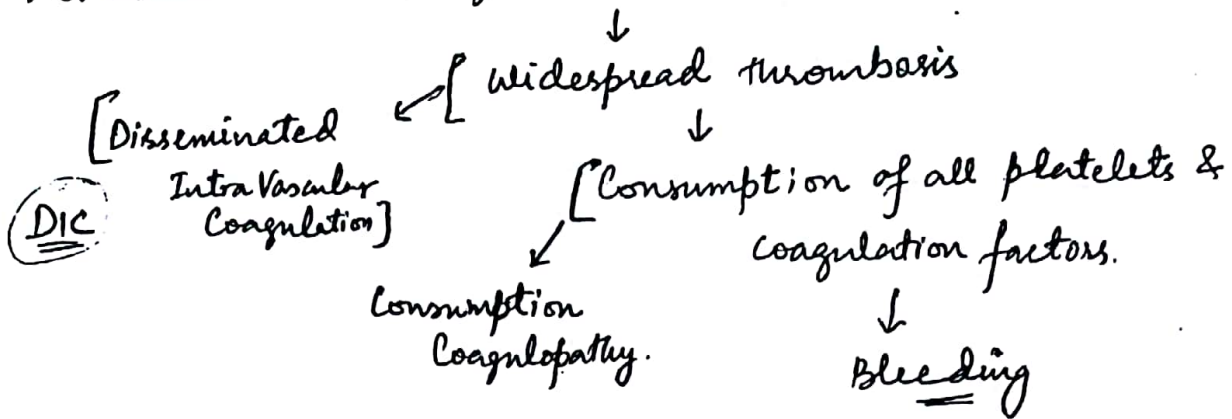 ↓
[ Widespread thrombosis
[Disseminated
Intra Vascular
Coagulation]
DIC
↓
[Consumption of all platelets &
coagulation factors.
Consumption
Coagulopathy.
↓
Bleeding